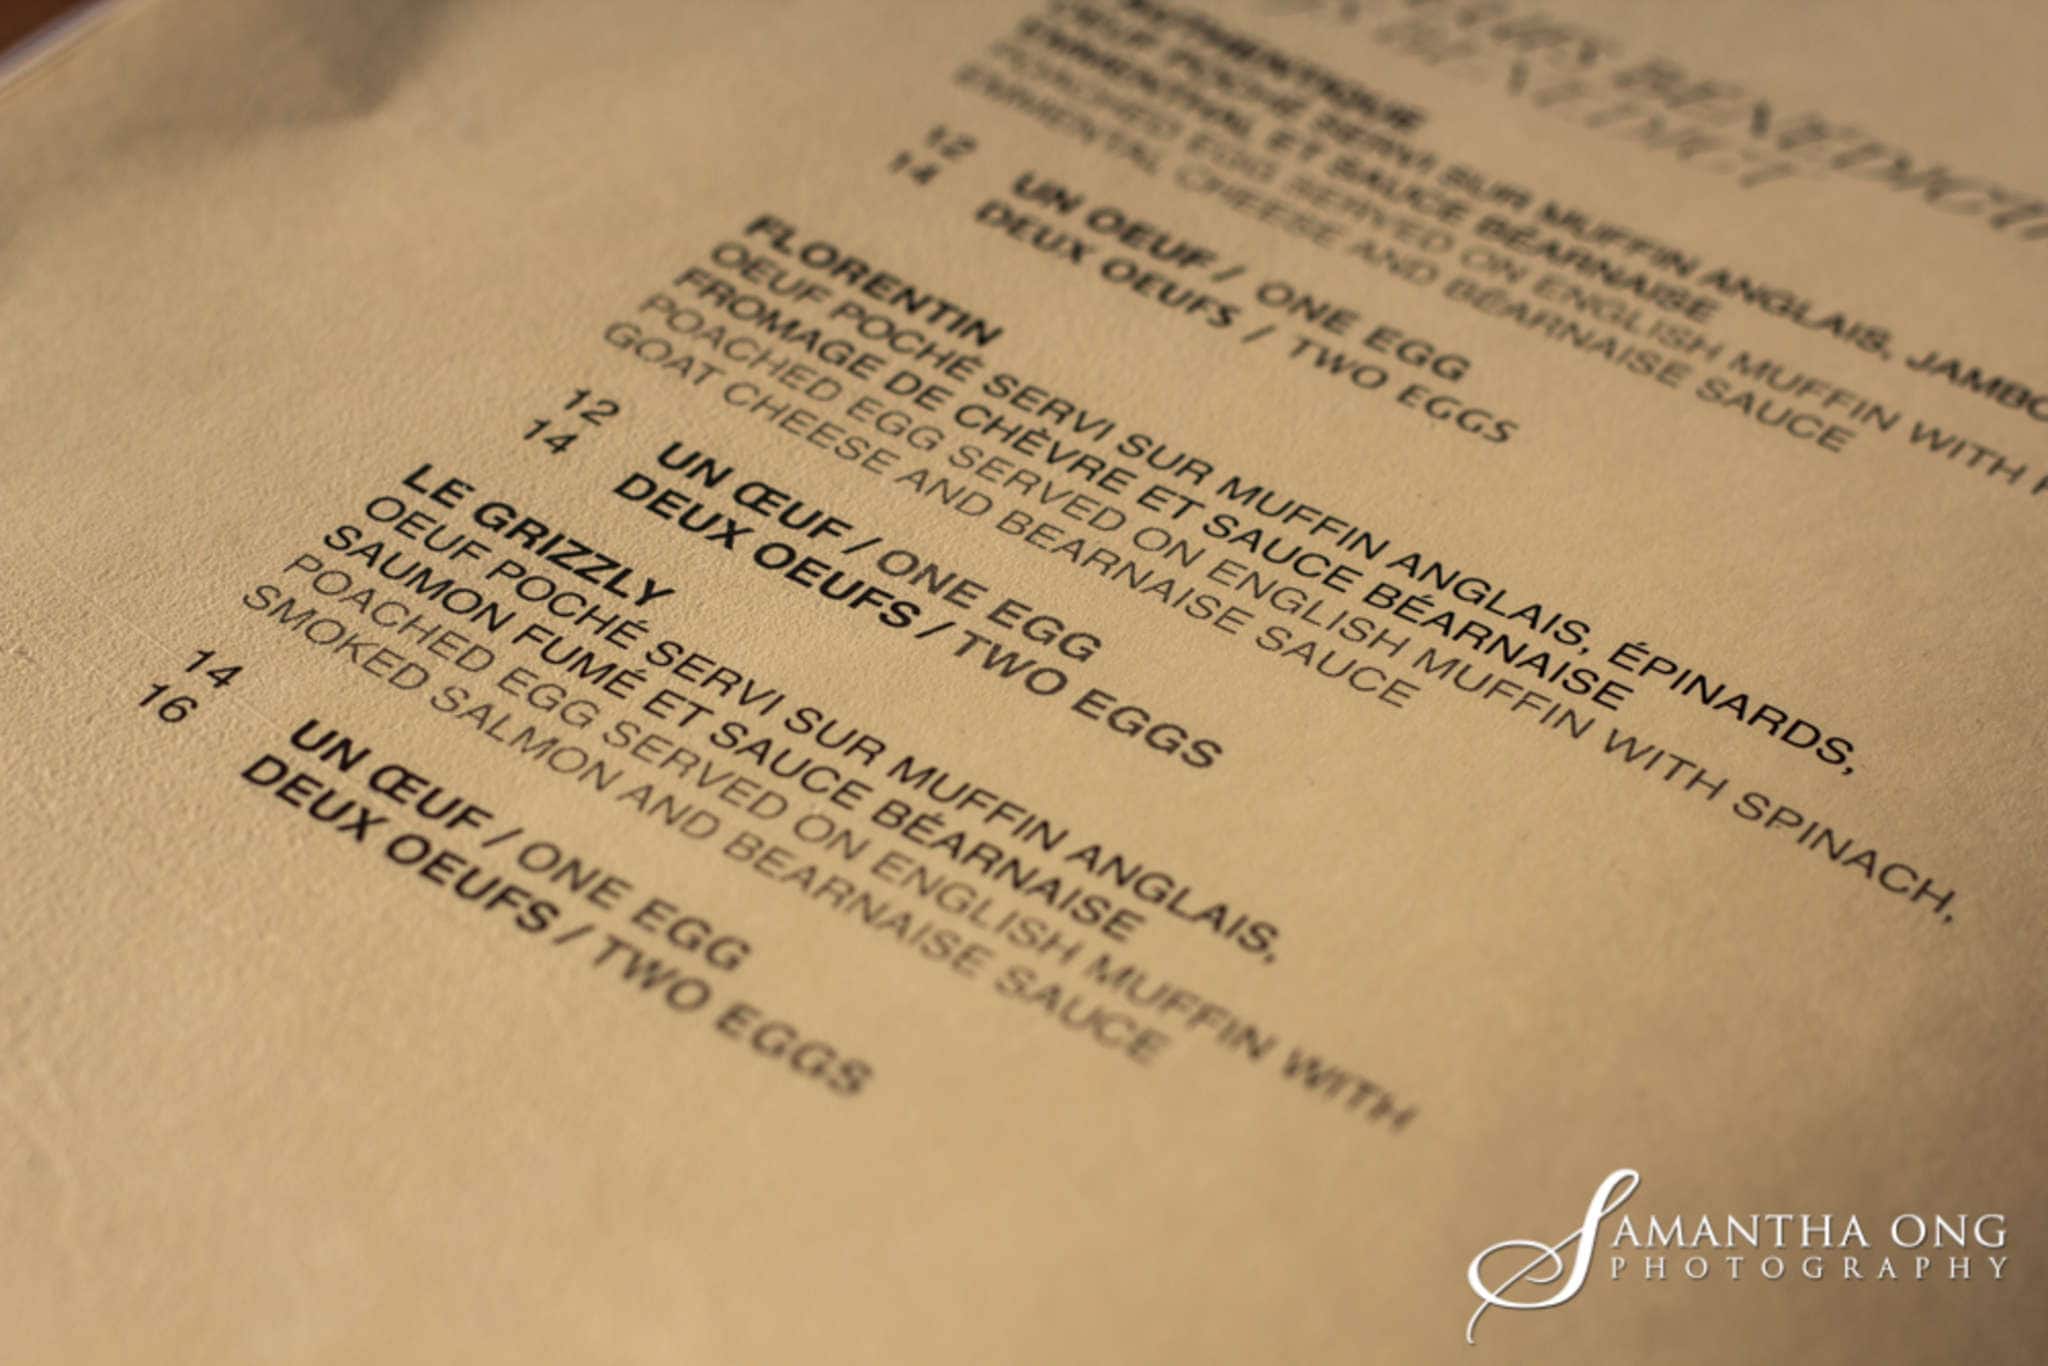 BENEDICT
AUTHENTIQUE
OEUF POCHÉ SERVI SUR MUFFIN ANGLAIS,
EMMENTHAL ET SAUCE BÉARNAISE
POACHED EGG SERVED ON ENGLISH MUFFIN WITH
EMMENTAL CHEESE AND BÉARNAISE SAUCE
12 UN OEUF / ONE EGG
14 DEUX OEUFS / TWO EGGS
FLORENTIN
OEUF POCHÉ SERVI SUR MUFFIN ANGLAIS, ÉPINARDS,
FROMAGE DE CHÈVRE ET SAUCE BÉARNAISE
POACHED EGG SERVED ON ENGLISH MUFFIN WITH SPINACH,
GOAT CHEESE AND BEARNAISE SAUCE
12 UN ŒUF / ONE EGG
14 DEUX OEUFS / TWO EGGS
LE GRIZZLY
OEUF POCHÉ SERVI SUR MUFFIN ANGLAIS,
SAUMON FUMÉ ET SAUCE BÉARNAISE
POACHED EGG SERVED ON ENGLISH MUFFIN WITH
SMOKED SALMON AND BEARNAISE SAUCE
14 UN ŒUF / ONE EGG
16 DEUX OEUFS / TWO EGGS
SAMANTHA ONG
PHOTOGRAPHY